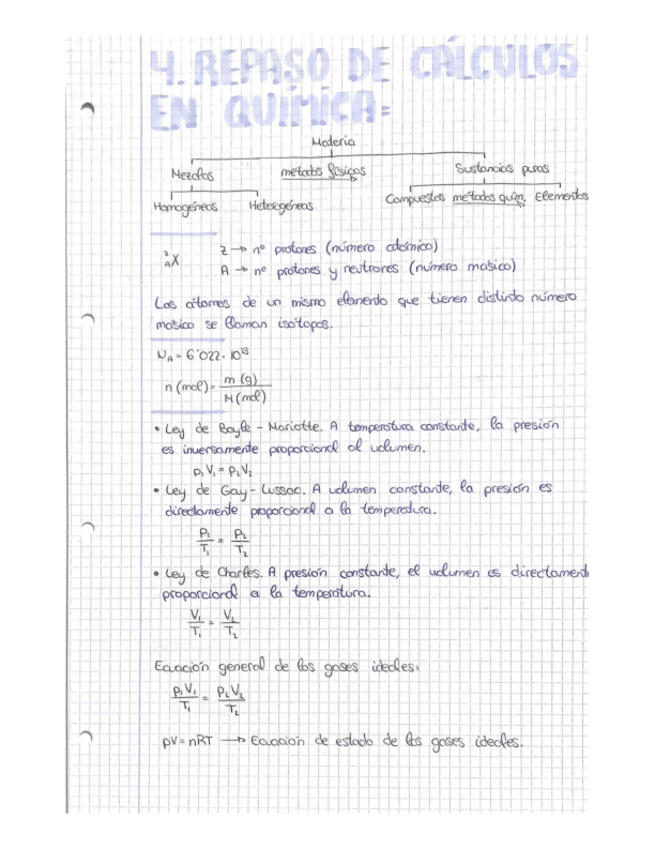 4. REPASO DE CÁLCULOS
EN QUÍMICA:
Materia
Mezclas métodos físicos Sustancias puras
Homogéneas Heterogéneas Compuestos métodos quím. Elementos
Z → nº protones (número atómico)
ᶻ_A X
A → nº protones y neutrones (número másico)
Los átomos de un mismo elemento que tienen distinto número
másico se llaman isótopos.
N_A = 6'022 · 10²³
n (mol) = m (g) / M (mol)
• Ley de Boyle - Mariotte. A temperatura constante, la presión
es inversamente proporcional al volumen.
p₁V₁ = p₂V₂
• Ley de Gay - Lussac. A volumen constante, la presión es
directamente proporcional a la temperatura.
p₁/T₁ = p₂/T₂
• Ley de Charles. A presión constante, el volumen es directament
proporcional a la temperatura.
V₁/T₁ = V₂/T₂
Ecuación general de los gases ideales:
p₁V₁/T₁ = p₂V₂/T₂
pV = nRT → Ecuación de estado de los gases ideales.